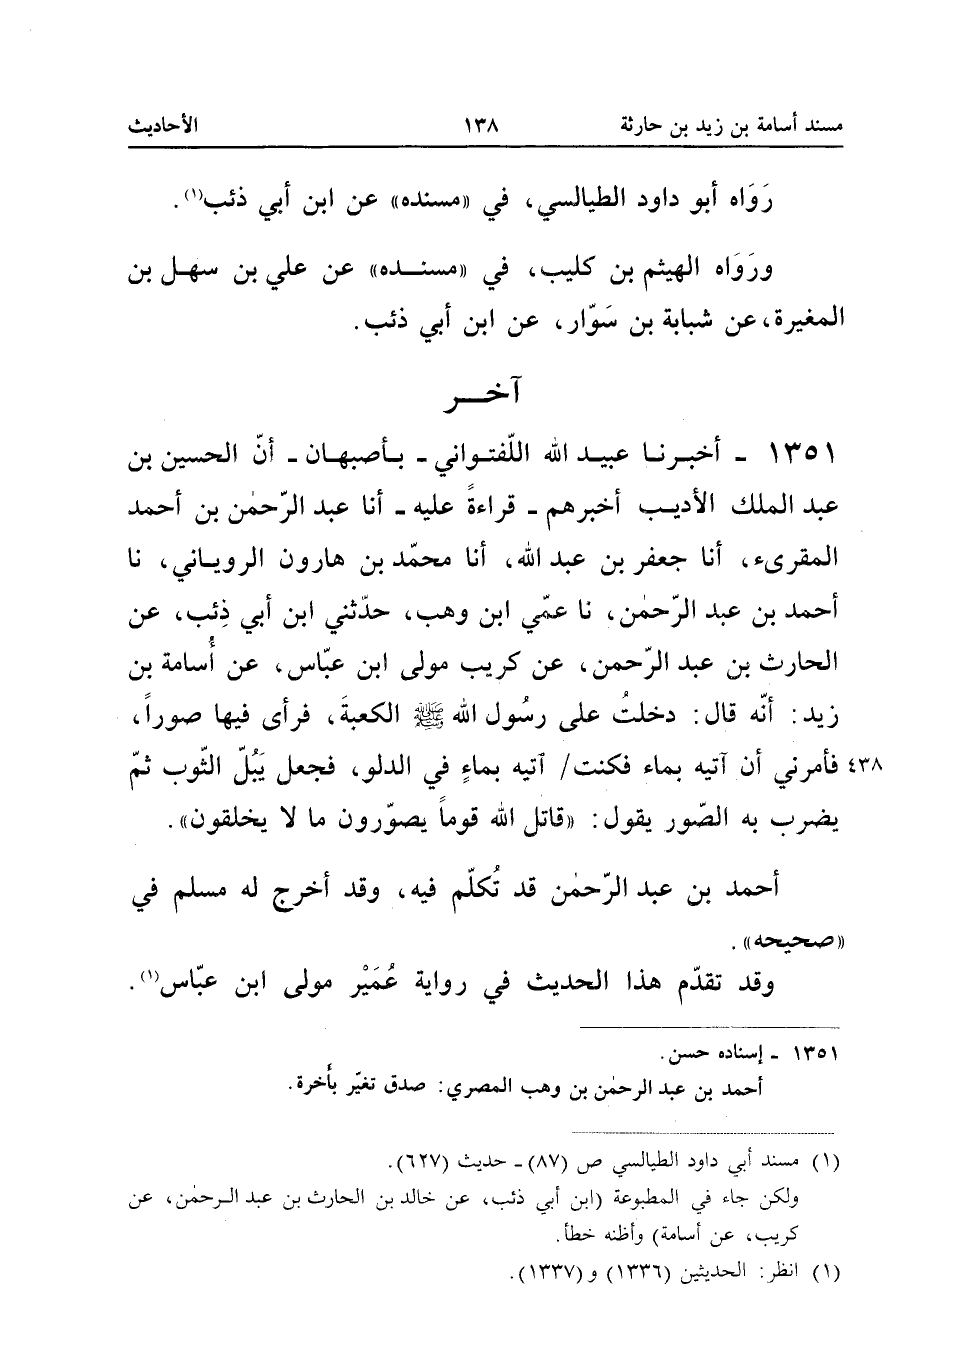 مسند أسامة بن زيد بن حارثة ١٣٨ الأحاديث
رَوَاه أبو داود الطيالسي، في «مسنده» عن ابن أبي ذئب(١).
ورَوَاه الهيثم بن كليب، في «مسنده» عن علي بن سهل بن
المغيرة، عن شبابة بن سَوّار، عن ابن أبي ذئب.
آخر
١٣٥١ - أخبرنا عبيد الله اللّفتواني - بأصبهان - أنّ الحسين بن
عبد الملك الأديب أخبرهم - قراءةً عليه - أنا عبد الرّحمٰن بن أحمد
المقرىء، أنا جعفر بن عبد الله، أنا محمّد بن هارون الروياني، نا
أحمد بن عبد الرّحمٰن، نا عمّي ابن وهب، حدّثني ابن أبي ذِئب، عن
الحارث بن عبد الرّحمن، عن كريب مولى ابن عبّاس، عن أُسامة بن
زيد: أنّه قال: دخلتُ على رسُول الله ﷺ الكعبةَ، فرأى فيها صوراً،
٤٣٨ فأمرني أن آتيه بماء فكنت/ آتيه بماءٍ في الدلو، فجعل يَبُلّ الثّوب ثمّ
يضرب به الصّور يقول: «قاتل الله قوماً يصوّرون ما لا يخلقون».
أحمد بن عبد الرّحمٰن قد تُكلّم فيه، وقد أخرج له مسلم في
«صحيحه».
وقد تقدّم هذا الحديث في رواية عُمَيْر مولى ابن عبّاس(١).
١٣٥١ - إسناده حسن.
أحمد بن عبد الرحمٰن بن وهب المصري: صدق تغيّر بأَخرة.
(١) مسند أبي داود الطيالسي ص (٨٧) - حديث (٦٢٧).
ولكن جاء في المطبوعة (ابن أبي ذئب، عن خالد بن الحارث بن عبد الرحمٰن، عن
كريب، عن أسامة) وأظنه خطأ.
(١) انظر: الحديثين (١٣٣٦) و(١٣٣٧).